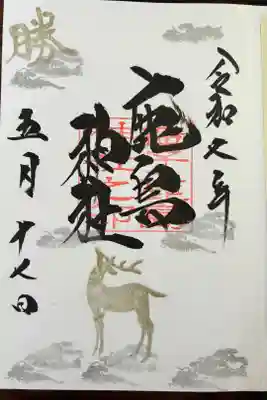 令和七年
鹿島
神社
五月十七日
勝